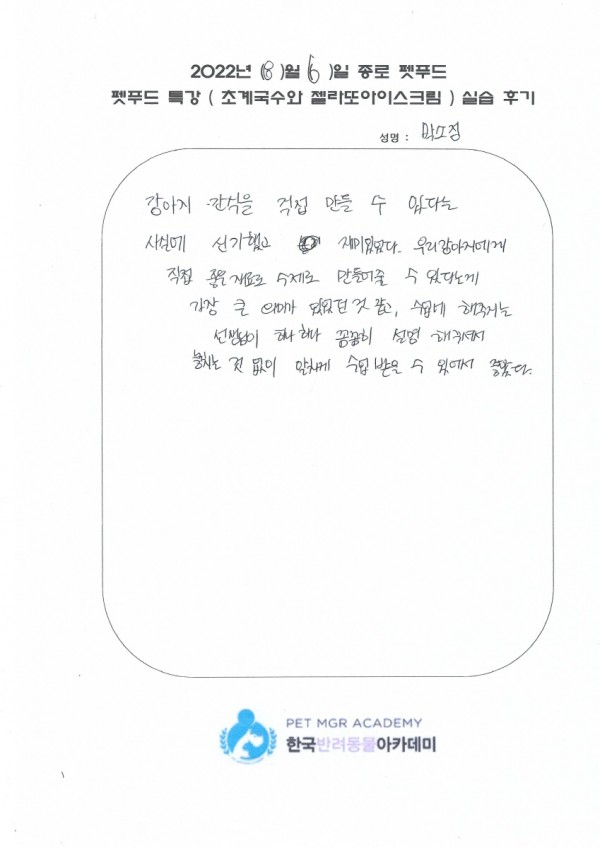 2022년 (8)월 (6)일 종로 펫푸드
펫푸드 특강 ( 초계국수와 젤라또아이스크림 ) 실습 후기
성명 :
강아지 간식을 직접 만들 수 있다는
사실에 신기했고 재미있었다. 우리강아지에게
직접 좋은재료로 수제로 만들어줄 수 있다는게
가장 큰 의미가 있었던 것 같고, 수업에 해주시는
선생님이 하나 하나 꼼꼼히 설명 해주셔서
놓치는 것 없이 알차게 수업 받을 수 있어서 좋았다.
PET MGR ACADEMY
한국반려동물아카데미